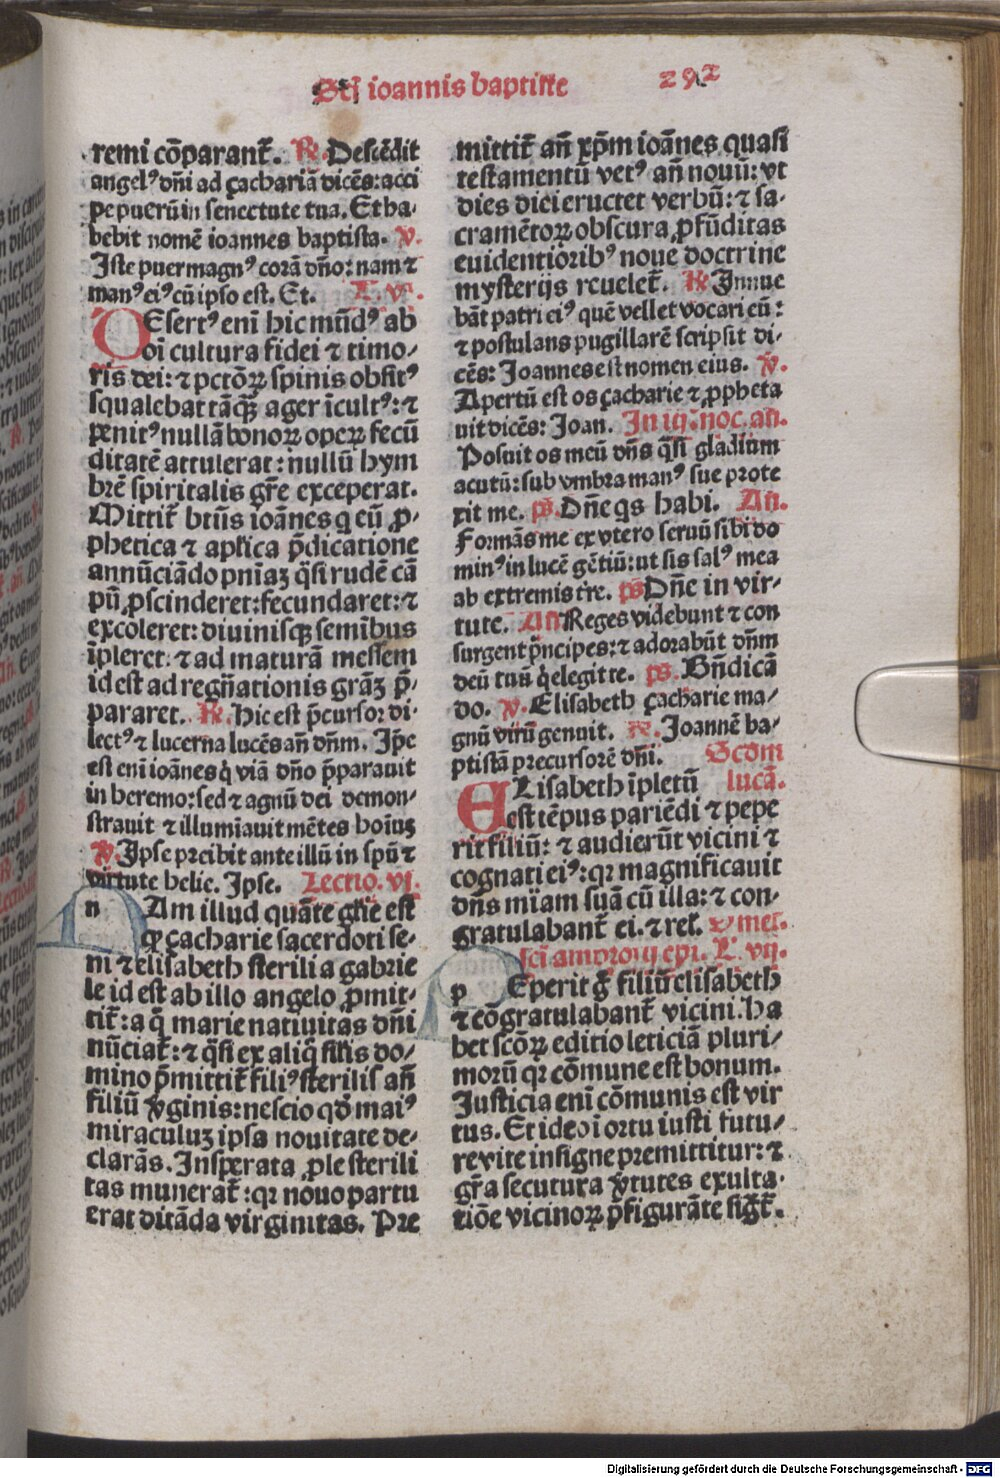 Scī ioannis baptiste 292
remi cōparant᷑. ℟. Descēdit
angelꝰ dn̄i ad çachariā dicēs: acci
pe puerū in senectute tua. Et ha-
bebit nomē ioannes baptista. ℣.
Iste puer magnꝰ corā dn̄o: nam ⁊
manꝰ eiꝰ cū ipso est. Et. L. v.
DEsertꝰ enī hic mūdꝰ ab
oī cultura fidei ⁊ timo-
ris dei: ⁊ pctōꝝ spinis obsitꝰ
squalebat tāꝙ̄ ager īcultꝰ: ⁊
penitꝰ nullā bonoꝝ opeꝝ fecū
ditatē attulerat: nullū hym
brē spiritalis gr̄e exceperat.
Mittit᷑ btūs ioānes q eū ꝓ-
phetica ⁊ apl̄ica p̄dicatione
annūciādo pn̄iaꝫ q̄si rudē cā
pū ꝓscinderet: fecundaret: ⁊
excoleret: diuinisꝙ semībus
īpleret: ⁊ ad maturā messem
id est ad regn̄ationis grāꝫ p̄-
pararet. ℟. Hic est p̄cursor di-
lectꝰ ⁊ lucerna lucēs an̄ dn̄m. Ip̄e
est enī ioānes q̇ viā dn̄o p̄parauit
in heremo: sed ⁊ agnū dei demon-
strauit ⁊ illumīauit mētes hoīuꝫ
℣. Ipse preibit ante illū in spū ⁊
virtute helie. Ipse. Lectio. vj.
n Am illud quāte gr̄ie est
ꝙ çacharie sacerdoti se-
ni ⁊ elisabeth sterili a gabrie
le id est ab illo angelo ꝓmit-
tit᷑: a q̄ marie natiuitas dn̄i
nūciat᷑: ⁊ q̄si ex aliq̄ fil̄is do-
mino p̄mittit᷑ filiꝰ sterilis an̄
filiū v̄ginis: nescio qd̄ maiꝰ
miraculuꝫ ipsa nouitate de-
clarās. Insperata ꝓle sterili
tas munerat᷑: qꝛ nouo partu
erat ditāda virginitas. Pre
mittit᷑ an̄ xp̄m ioānes quasi
testamentū vetꝰ an̄ nouū: vt
dies diei eructet verbū: ⁊ sa-
cramētoꝝ obscura ꝓfūditas
euidentioribꝰ noue doctrine
mysterijs reuelet᷑. ℟. Innue
bāt patri eiꝰ quē vellet vocari eū:
⁊ postulans pugillarē scripsit di-
cēs: Ioannes est nomen eius. ℣.
Apertū est os çacharie ⁊ ꝓpheta
uit dicēs: Ioan. In iij. noc. an̄.
Posuit os meū dn̄s q̄si gladium
acutū: sub vmbra manꝰ sue prote
xit me. ps̄. Dn̄e qs habi. An̄.
Formās me ex vtero seruū sibi do
minꝰ in lucē gētiū: ut sis salꝰ mea
ab extremis tr̄e. ps̄ Dn̄e in vir-
tute. An̄ Reges videbunt ⁊ con
surgent p̄ncipes: ⁊ adorabūt dn̄m
deū tuū q̇ elegit te. ps̄. Bn̄dicā
do. ℣. Elisabeth çacharie ma-
gnū virū genuit. ℟. Ioannē ba-
ptistā precursorē dn̄i. Scd̄m
ELisabeth īpletū lucā.
est tēpus pariēdi ⁊ pepe
rit filiū: ⁊ audierūt vicini ⁊
cognati eiꝰ: qꝛ magnificauit
dn̄s mīam suā cū illa: ⁊ con-
gratulabant᷑ ei. ⁊ rel̄.
scī ambrosij epi. L. vij.
p Eperit g̊ filiū elisabeth
⁊ cōgratulabant᷑ vicini. Ha
bet scōꝝ editio leticiā pluri-
morū qꝛ cōmune est bonum.
Iusticia enī cōmunis est vir
tus. Et ideo i ortu iusti futu-
re vite insigne premittitur: ⁊
gr̄a secutura v̄tutes exulta-
tiōe vicinoꝝ p̄figurāte sigt᷑.
Digitalisierung gefördert durch die Deutsche Forschungsgemeinschaft - DFG